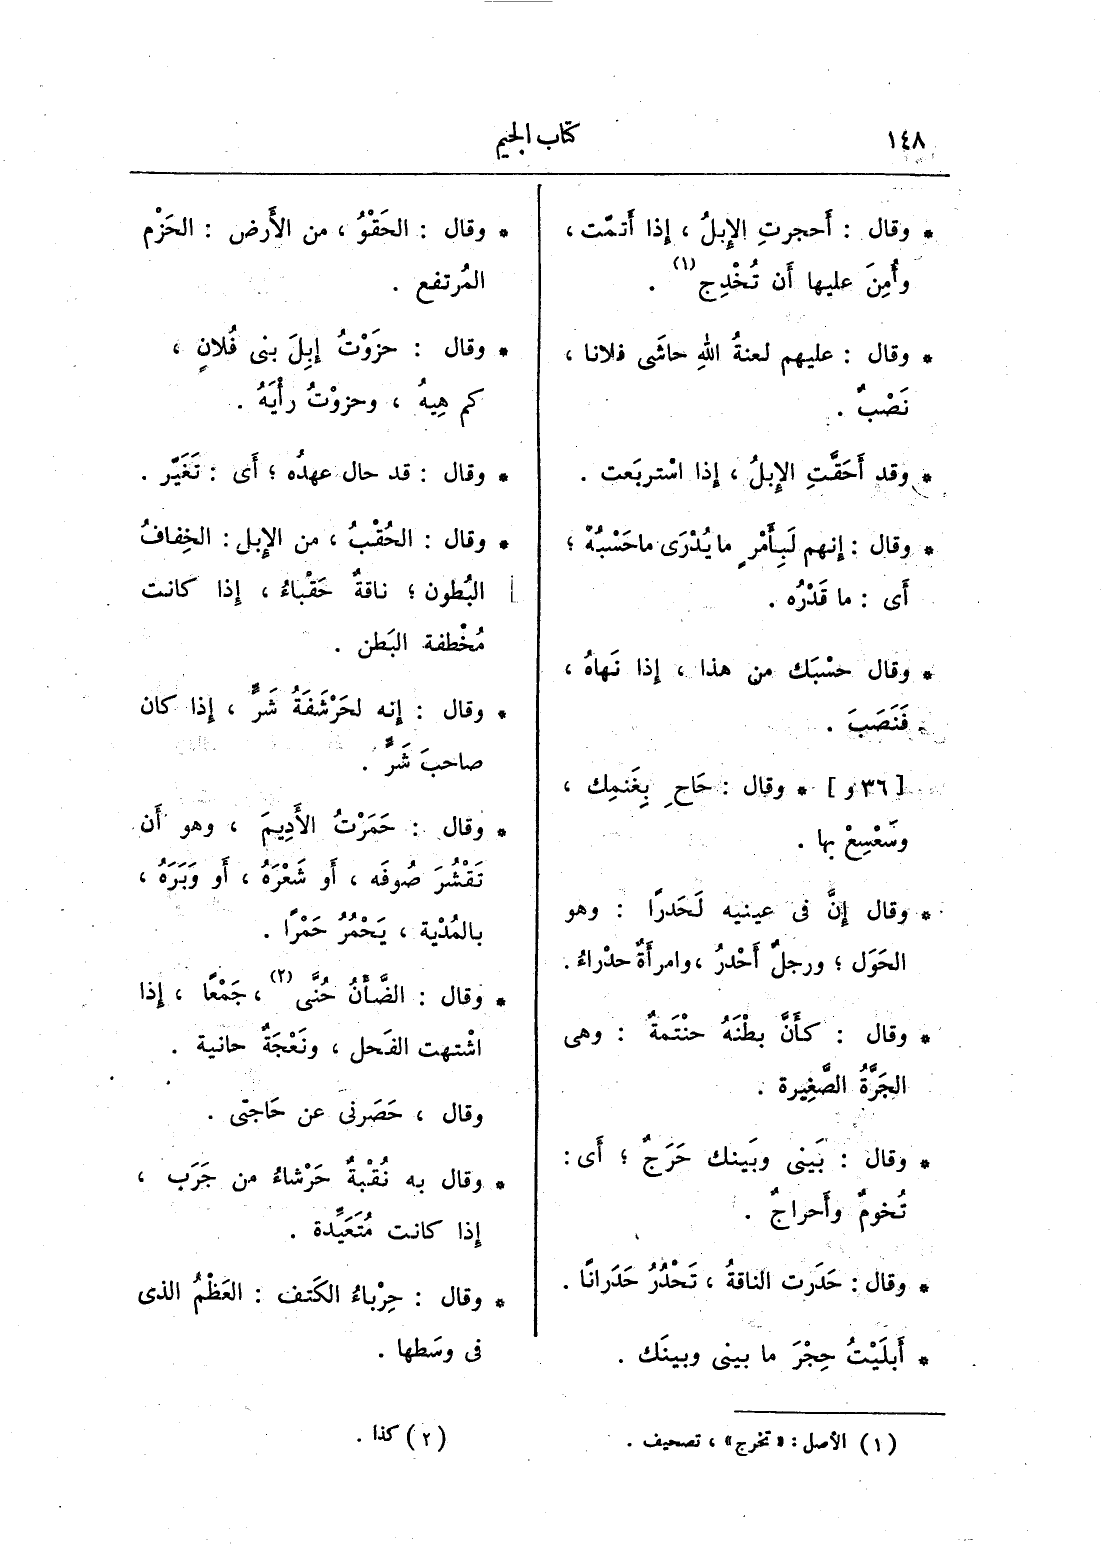 ١٤٨
كتاب الجيم
* وقال : أَحجرتِ الإِبلُ ، إذا أَتمّت ،
وأُمِنَ عليها أَن تُخْدِج (١) .
* وقال : عليهم لعنةُ اللهِ حاشى فلانا ،
نَصْبٌ .
* وقد أَحَقَّتِ الإِبلُ ، إذا اسْتربَعت .
* وقال : إنهم لَبِأَمْرٍ ما يُدْرَى ماحَسْبُهْ ؛
أَى : ما قَدْرُه .
* وقال حسْبَك من هذا ، إذا نَهاهُ ،
فَنَصَبَ .
[ ٣٦ و ] * وقال : حَاحِ بِغَنمِك ،
وسَعْسِعْ بها .
* وقال إنَّ فى عينيه لَحَدرًا : وهو
الحَوَل ؛ ورجلٌ أَحْدرُ ، وامرأَةٌ حدْراءُ .
* وقال : كأَنَّ بطْنَهُ حنْتَمةٌ : وهى
الجَرَّةُ الصَّغِيرة .
* وقال : بَينى وبَينك حَرَجٌ ؛ أَى :
تُخومٌ وأَحراجٌ .
* وقال : حَدَرت الناقةُ ، تَحْدُرُ حَدَرانًا .
* أَبلَيْتُ حِجْرَ ما بينى وبينَك .
* وقال : الحَقْوُ ، من الأَرض : الحَزْم
المُرتفع .
* وقال : حزَوْتُ إبِلَ بنى فُلانٍ ،
كم هِيهُ ، وحزوْتُ رأْيَهُ .
* وقال : قد حال عهدُه ؛ أَى : تَغَيّر .
* وقال : الحُقْبُ ، من الإبل : الخِفافُ
البُطون ؛ ناقةٌ حَقْباءُ ، إذا كانت
مُخْطفة البَطن .
* وقال : إنه لحَرْشَفَةُ شَرٍّ ، إذا كان
صاحبَ شَرٍّ .
* وقال : حَمَرْتُ الأَديمَ ، وهو أَن
تَقْشُرَ صُوفَه ، أَو شَعْرَهُ ، أَو وَبَرَهُ ،
بالمُدْية ، يَحْمُرُ حَمْرًا .
* وقال : الضَّأْنُ حُنَّى (٢) ، جَمْعًا ، إذا
اشْتهت الفَحل ، ونَعْجَةٌ حانية .
وقال ، حَصَرنى عن حَاجتى .
* وقال به نُقْبةٌ حَرْشاءُ من جَرَب ،
إذا كانت مُتَعَيِّدة .
* وقال : حِرْباءُ الكَتف : العَظْمُ الذى
فى وسَطها .
(١) الأصل : «تخرج» ، تصحيف .
(٢) كذا .